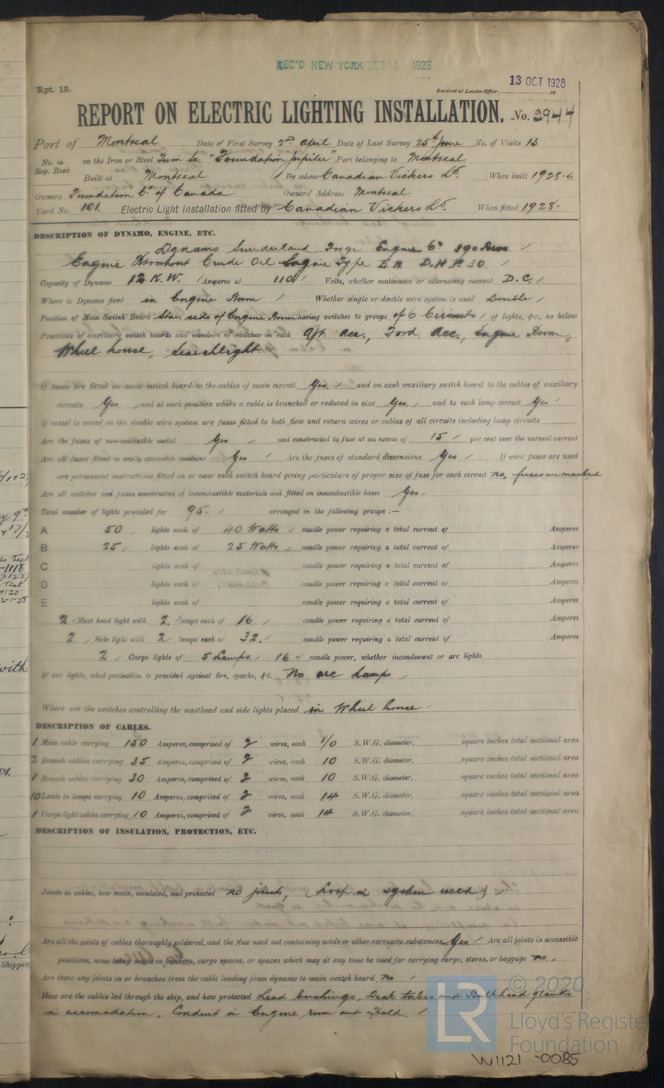 REC'D NEW YORK OCT 1928
Rpt. 13.
13 OCT 1928
Received at London Office
REPORT ON ELECTRIC LIGHTING INSTALLATION. No. 2944
Port of Montreal Date of First Survey 2nd April Date of Last Survey 25th June No. of Visits 13
No. in Reg. Book on the Iron or Steel Twin Sc. "Foundation Jupiter" Port belonging to Montreal
Built at Montreal By whom Canadian Vickers Ld. When built 1928-6
Owners Foundation Co. of Canada Owners' Address Montreal
Yard No. 101. Electric Light Installation fitted by Canadian Vickers Ld. When fitted 1928.
DESCRIPTION OF DYNAMO, ENGINE, ETC.
Dynamo Sunderland Forge Engine Co.
Engine Kromhout Crude Oil Engine Type
Capacity of Dynamo 12 K.W. Amperes at 110 Volts, whether continuous or alternating current D.C.
Where is Dynamo fixed in Engine Room Whether single or double wire system is used Double
Position of Main Switch Board Star. side of Engine Room having switches to groups of 6 Circuits of lights, &c., as below
Positions of auxiliary switch boards and numbers of switches on each Aft. Acc., Ford. Acc., Engine Room,
Wheel house, Searchlight
If fuses are fitted on main switch board to the cables of main circuit Yes and on each auxiliary switch board to the cables of auxiliary
circuits Yes and at each position where a cable is branched or reduced in size Yes and to each lamp circuit Yes
If vessel is wired on the double wire system are fuses fitted to both flow and return wires or cables of all circuits including lamp circuits
Are the fuses of non-oxidizable metal Yes and constructed to fuse at an excess of 15 per cent over the normal current
Are all fuses fitted in easily accessible positions Yes Are the fuses of standard dimensions Yes If wire fuses are used
are permanent instructions fitted on or near each switch board giving particulars of proper size of fuse for each circuit no, fuses are marked
Are all switches and fuses constructed of incombustible materials and fitted on incombustible bases Yes
Total number of lights provided for 95. arranged in the following groups :—
A 50 lights each of 40 Watts candle power requiring a total current of Amperes
B 25 lights each of 25 Watts candle power requiring a total current of Amperes
C lights each of candle power requiring a total current of Amperes
D lights each of candle power requiring a total current of Amperes
E lights each of candle power requiring a total current of Amperes
2 Mast head light with 2 lamps each of 16 candle power requiring a total current of Amperes
2 Side light with 2 lamps each of 32 candle power requiring a total current of Amperes
2 Cargo lights of 5 Lamps 16 candle power, whether incandescent or arc lights
If arc lights, what protection is provided against fire, sparks, &c. No arc Lamps
Where are the switches controlling the masthead and side lights placed in Wheel house
DESCRIPTION OF CABLES.
1 Main cable carrying 150 Amperes, comprised of 2 wires, each 4/0 S.W.G. diameter, square inches total sectional area
2 Branch cables carrying 35 Amperes, comprised of 2 wires, each 10 S.W.G. diameter, square inches total sectional area
1 Branch cables carrying 30 Amperes, comprised of 2 wires, each 10 S.W.G. diameter, square inches total sectional area
10 Leads to lamps carrying 10 Amperes, comprised of 2 wires, each 14 S.W.G. diameter, square inches total sectional area
1 Cargo light cables carrying 10 Amperes, comprised of 2 wires, each 14 S.W.G. diameter, square inches total sectional area
DESCRIPTION OF INSULATION, PROTECTION, ETC.
Joints in cables, how made, insulated, and protected no joints, (Loop in system used)
Are all the joints of cables thoroughly soldered, and the flux used not containing acids or other corrosive substances Yes Are all joints in accessible
positions, none being made in bunkers, cargo spaces, or spaces which may at any time be used for carrying cargo, stores, or baggage no.
Are there any joints in or branches from the cable leading from dynamo to main switch board no
How are the cables led through the ship, and how protected Lead bushings, Deck tubes and Bulkhead glands
in accomodation, Conduit in Engine room and Hold.
© 2020
LR
Lloyd's Register
Foundation
W1121-0085